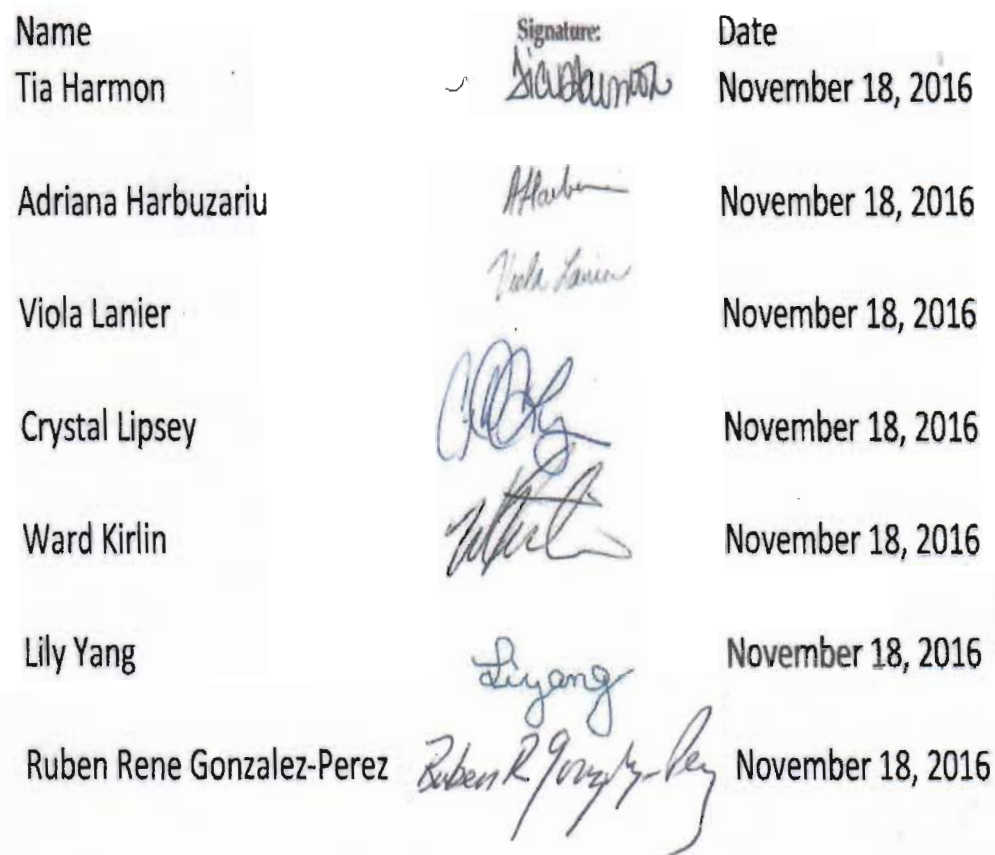 Name Signature: Date
Tia Harmon Tia Harmon November 18, 2016
Adriana Harbuzariu November 18, 2016
Viola Lanier
Viola Lanier November 18, 2016
Crystal Lipsey November 18, 2016
Ward Kirlin November 18, 2016
Lily Yang Liyang November 18, 2016
Ruben Rene Gonzalez-Perez Ruben R Gonzalez-Perez November 18, 2016